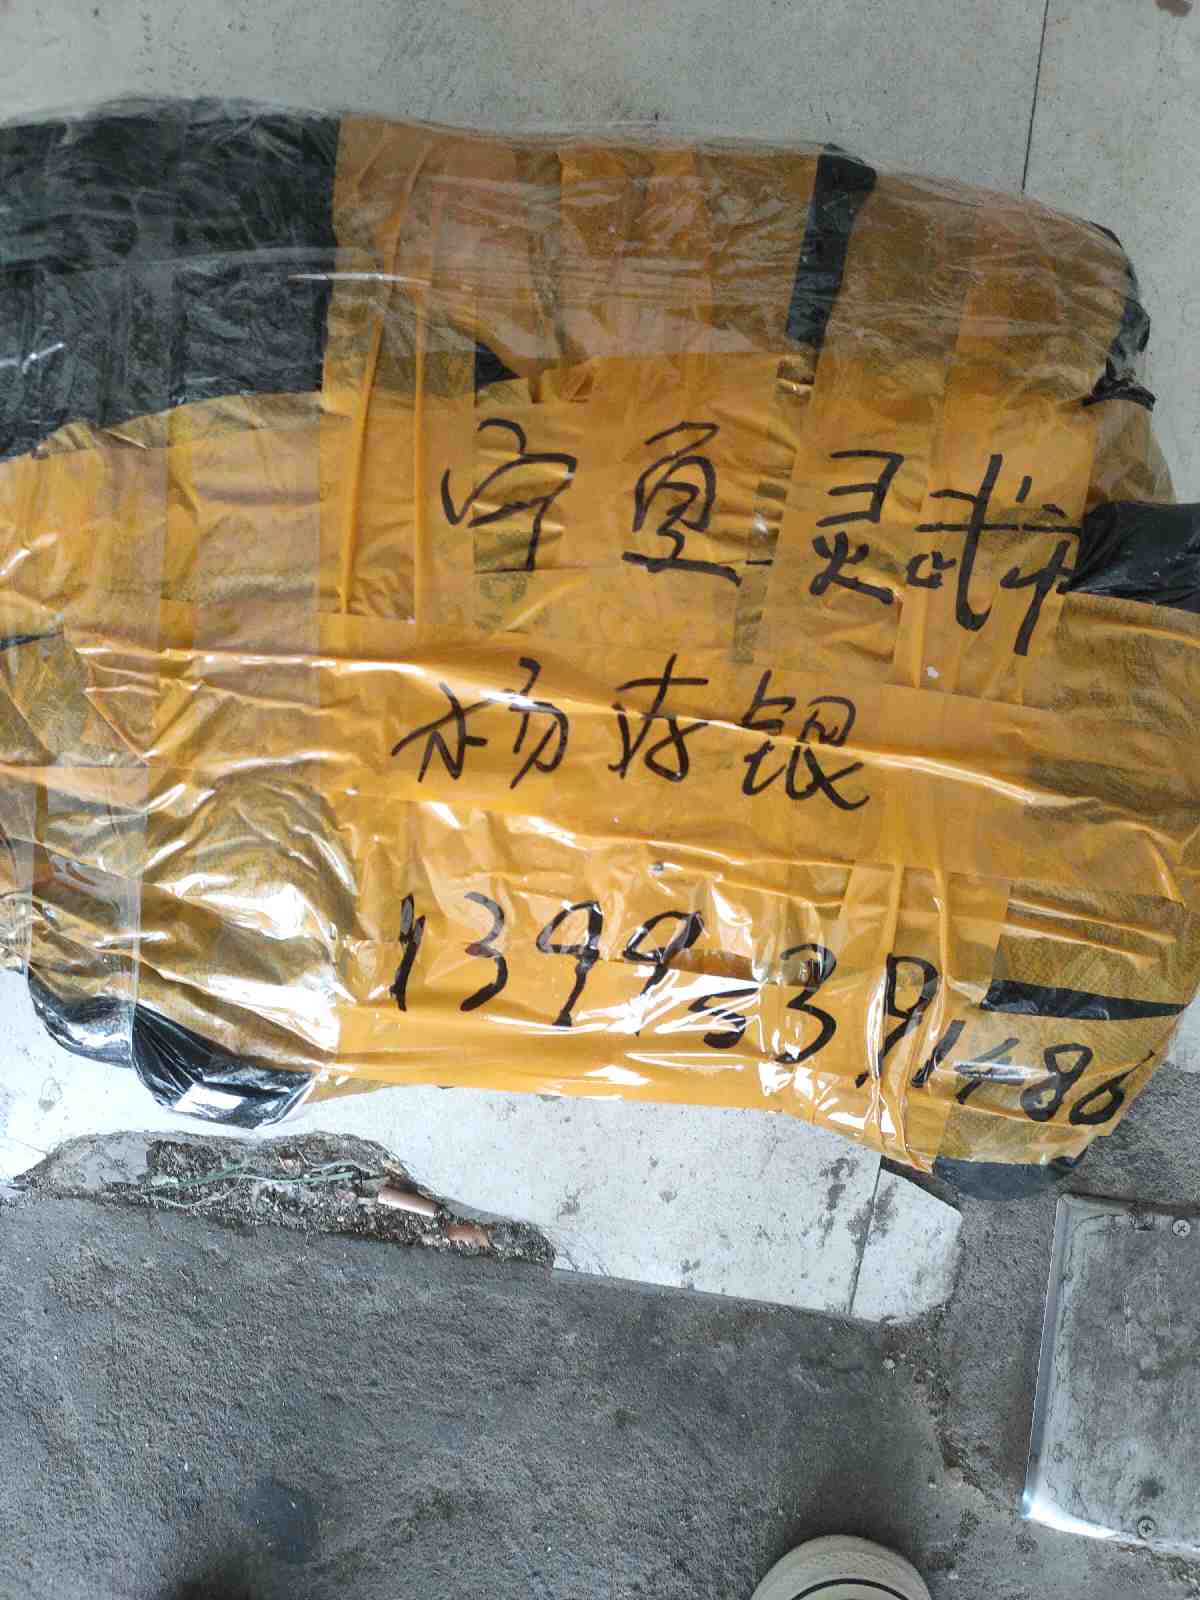 宁夏灵武市
杨存银
13995391486